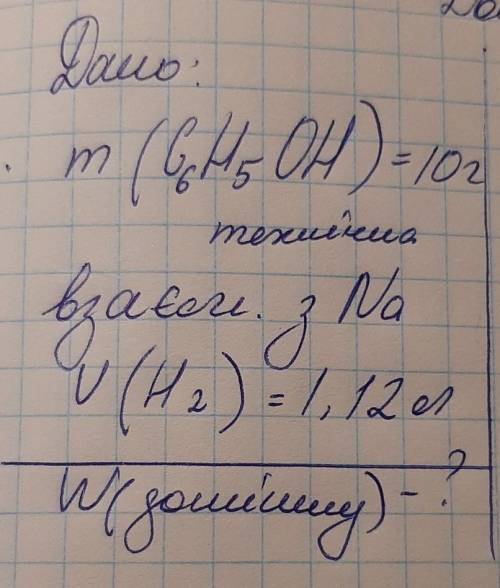 Дано:
m (C₆H₅OH) = 10г
технічна
взаєм. з Na
V(H₂) = 1,12 л
W(домішку) - ?